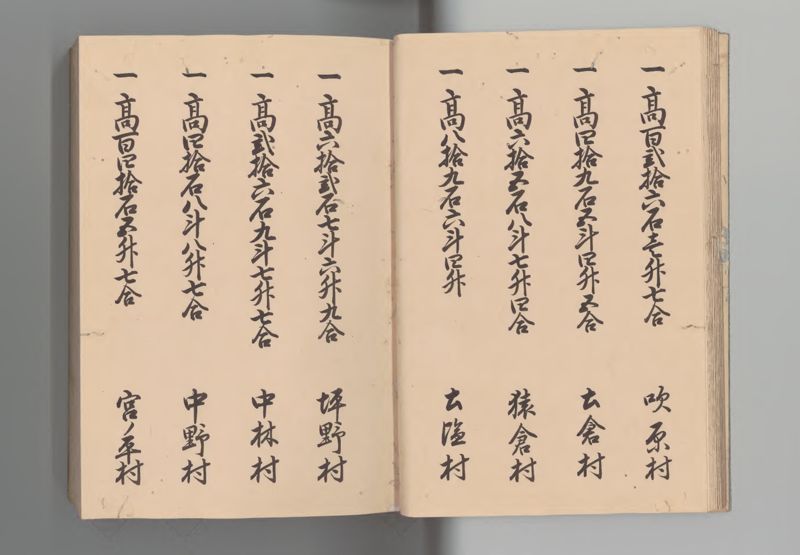 一高百弐拾六石壱升七合 吹原村
一高四拾九石五斗四升五合 土倉村
一高六拾五石八斗七升四合 猿倉村
一高八拾九石六斗四升 土塩村
一高六拾弐石七斗六升九合 坪野村
一高弐拾六石九斗七升七合 中林村
一高四拾石八斗八升七合 中野村
一高百四拾石五升七合 宮ノ平村